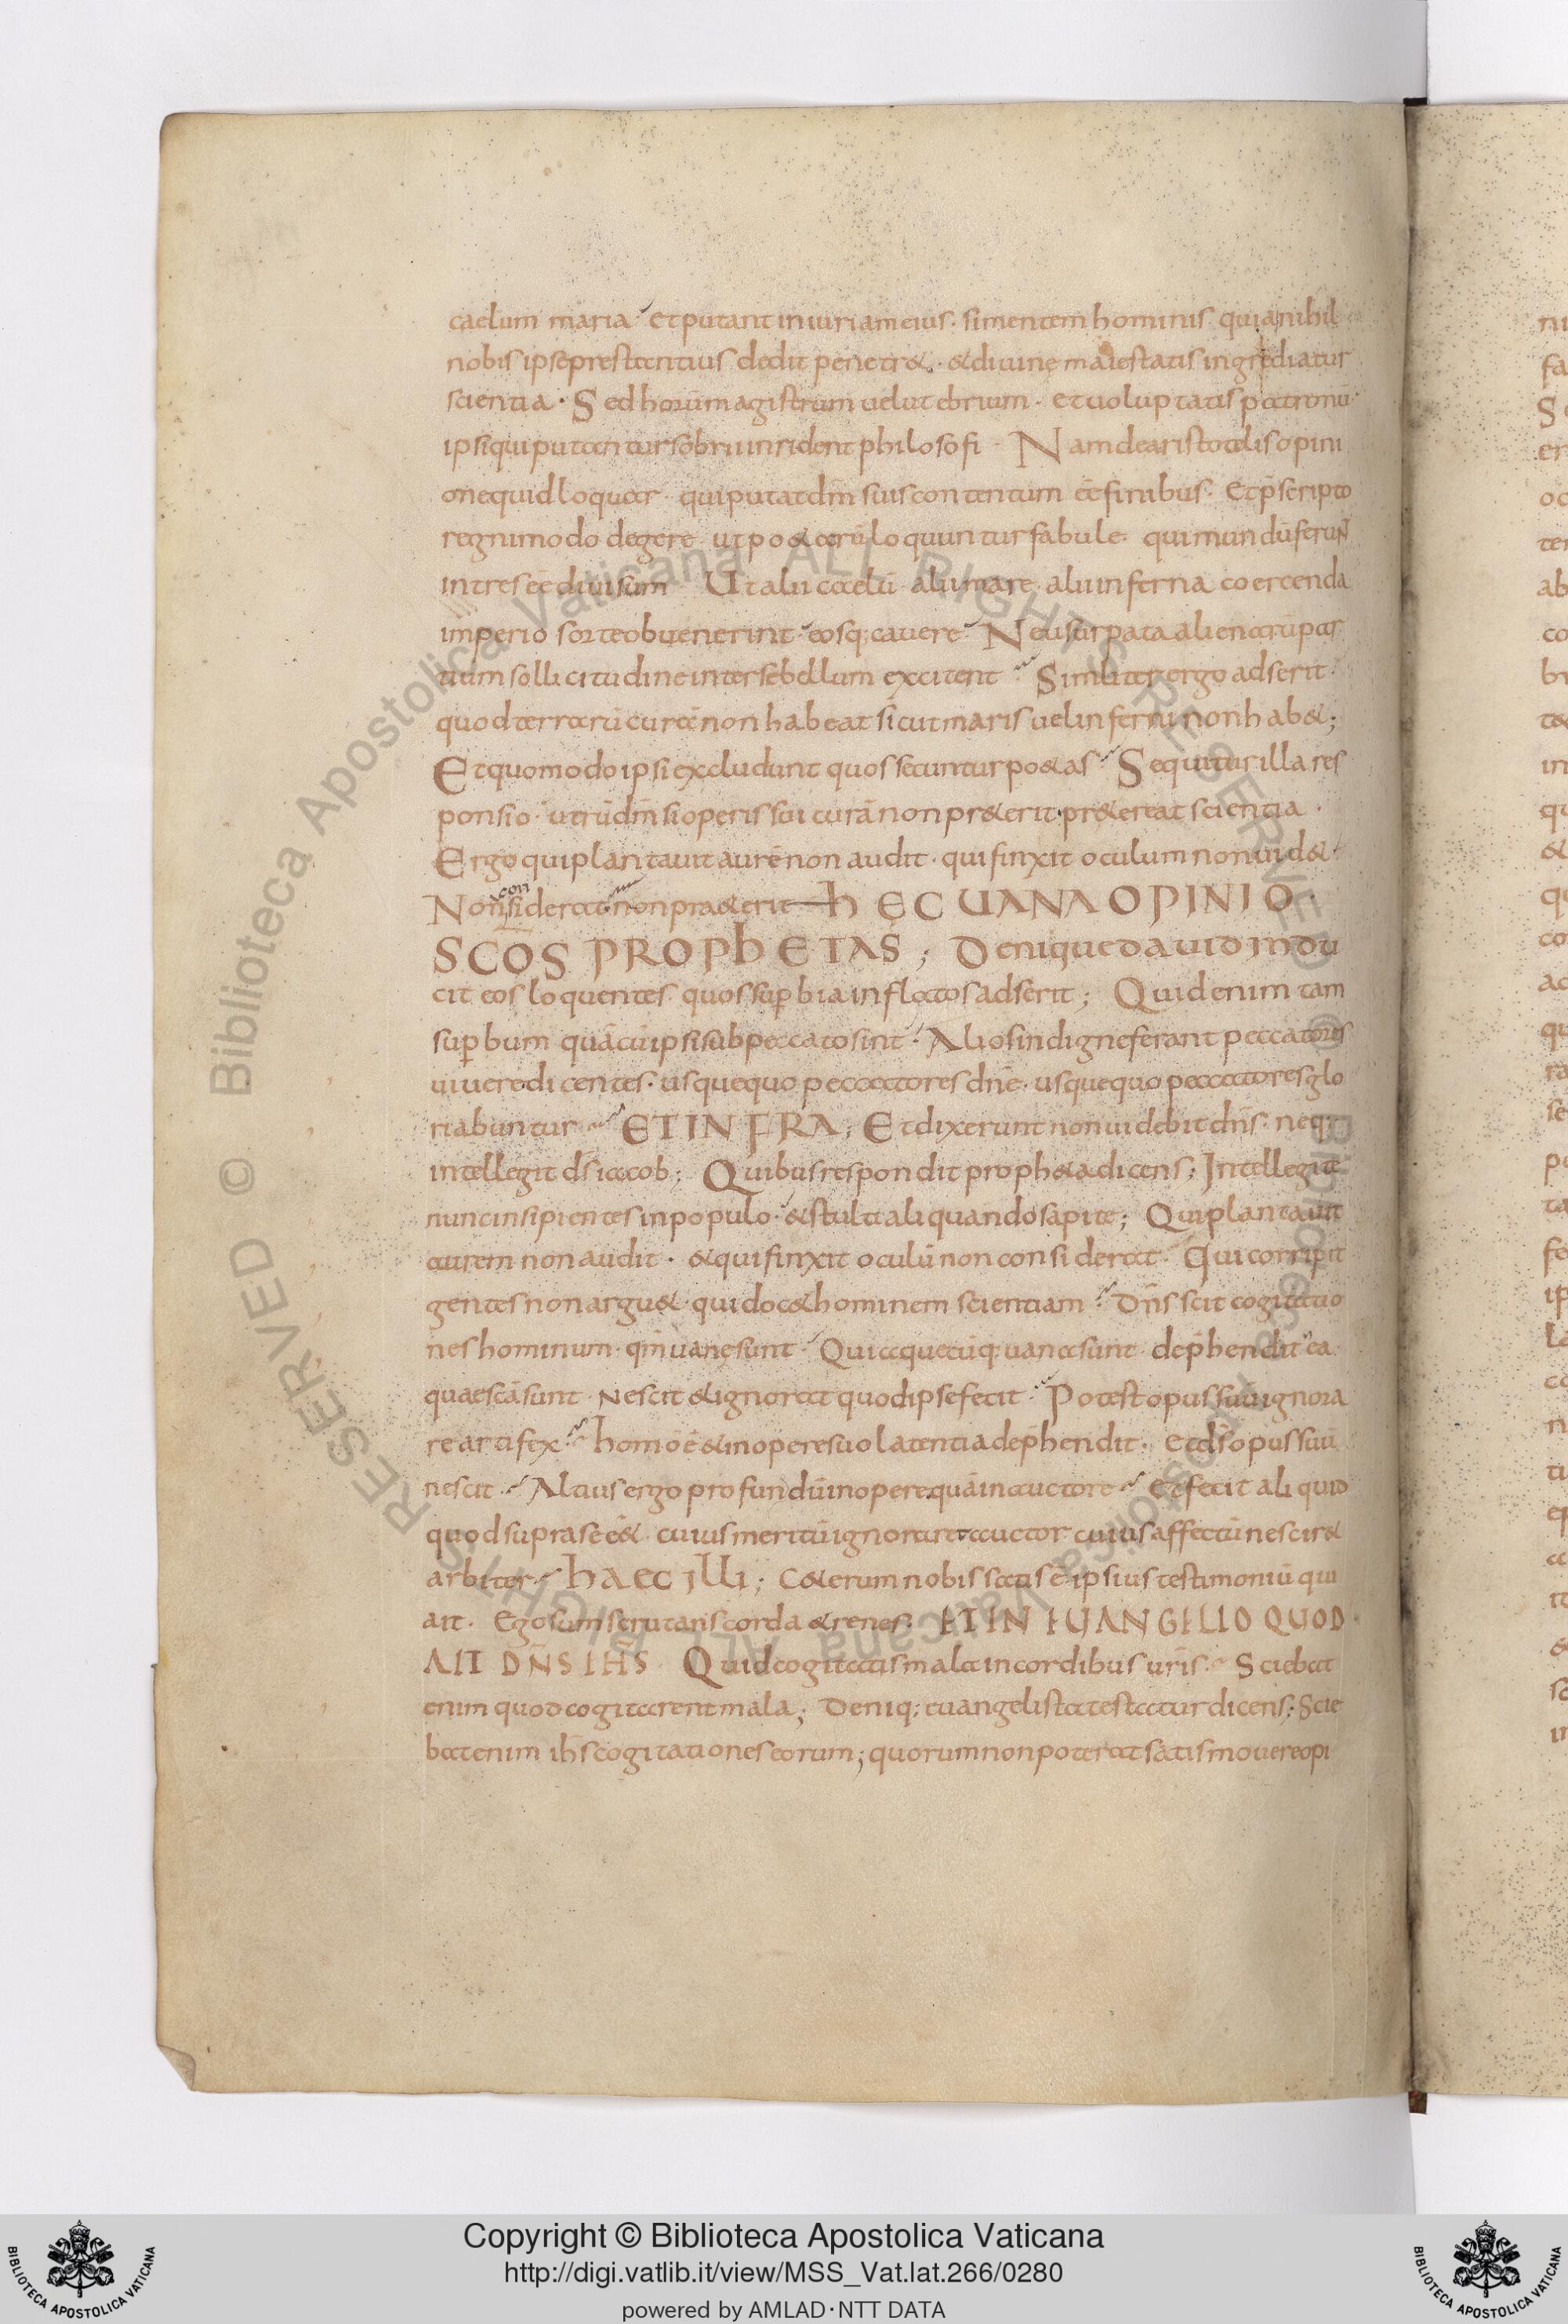 caelum maria et putant iniuriam eius. si mentem hominis qua nihil
nobis ipse prestantius dedit penetr&. & diuinę maiestatis ingrediatur
scientia. Sed horū magistrum uelut ebrium. et uoluptatis patronū
ipsi qui putantur sobrii inrident philosofi. Nam de aristotelis opini
one quid loquar. qui putat dm̄ suis contentum eē finibus. Et p̄scripto
regni modo degere ut po&arū loquuntur fabule. qui mundū ferunt
in tres eē diuisum. Ut alii caelū alii mare. alii inferna coercenda
imperio sorte obuenerint. eosq; cauere. Ne usurpata alienarū par
tium sollicitudine inter se bellum excitent. Similiter ergo adserit.
quod terrarū curā non habeat sicut maris uel inferni non hab&;
Et quomodo ipsi excludunt quos secuntur po&as. Sequitur illa res
ponsio. utrū dm̄ si operis sui curā non pr&erit. pr&ereat scientia.
Ergo qui plantauit aurē non audit. qui finxit oculum non uid&.
Non considerat non pra&erit hEC UANA OPINIO.
SCOS PROPhETAS; Denique dauid indu
cit eos loquentes quos sup̱bia inflatos adserit; Quid enim tam
sup̱bum quā cū ipsi sub peccato sint. Alios indigne ferant peccatores
uiuere dicentes. usquequo peccatores dne. usquequo peccatores glo
riabuntur. ET INFRA; Et dixerunt non uidebit dns. neq;
intellegit ds iacob; Quibus respondit proph&a dicens; Intellegite
nunc insipientes in populo. & stulti aliquando sapite; Qui plantauit
aurem non audit. & qui finxit oculū non considerat. Qui corripit
gentes non argu&. qui doc& hominem scientiam. Dn̄s scit cogitatio
nes hominum. qm̄ uanę sunt. Qui quaecūq; uana sunt dep̄hendit ea
quae scā sunt. Nescit & ignorat quod ipse fecit. Potest opus suū ignora
re artifex. homo ē & in opere suo latentia dep̄hendit. et ds̄ opus suū
nescit. Altius ergo profundū in opere quā in auctore. Et fecit aliquid
quod supra se eē&. cuius meritū ignoraret auctor cuius affectū nescir&
arbiter. haec illi; C&erum nobis satis ē ipsius testimoniū qui
ait. Ego sum scrutans corda & renes. ET IN EUANGELIO QUOD
AIT DN̄S IHS Quid cogitatis mala in cordibus uris. Sciebat
enim quod cogitarent mala; Deniq; euangelista testatur dicens; Scie
bat enim ihs cogitationes eorum; quorum non poterat satis mouere opi
Copyright © Biblioteca Apostolica Vaticana
http://digi.vatlib.it/view/MSS_Vat.lat.266/0280
powered by AMLAD·NTT DATA